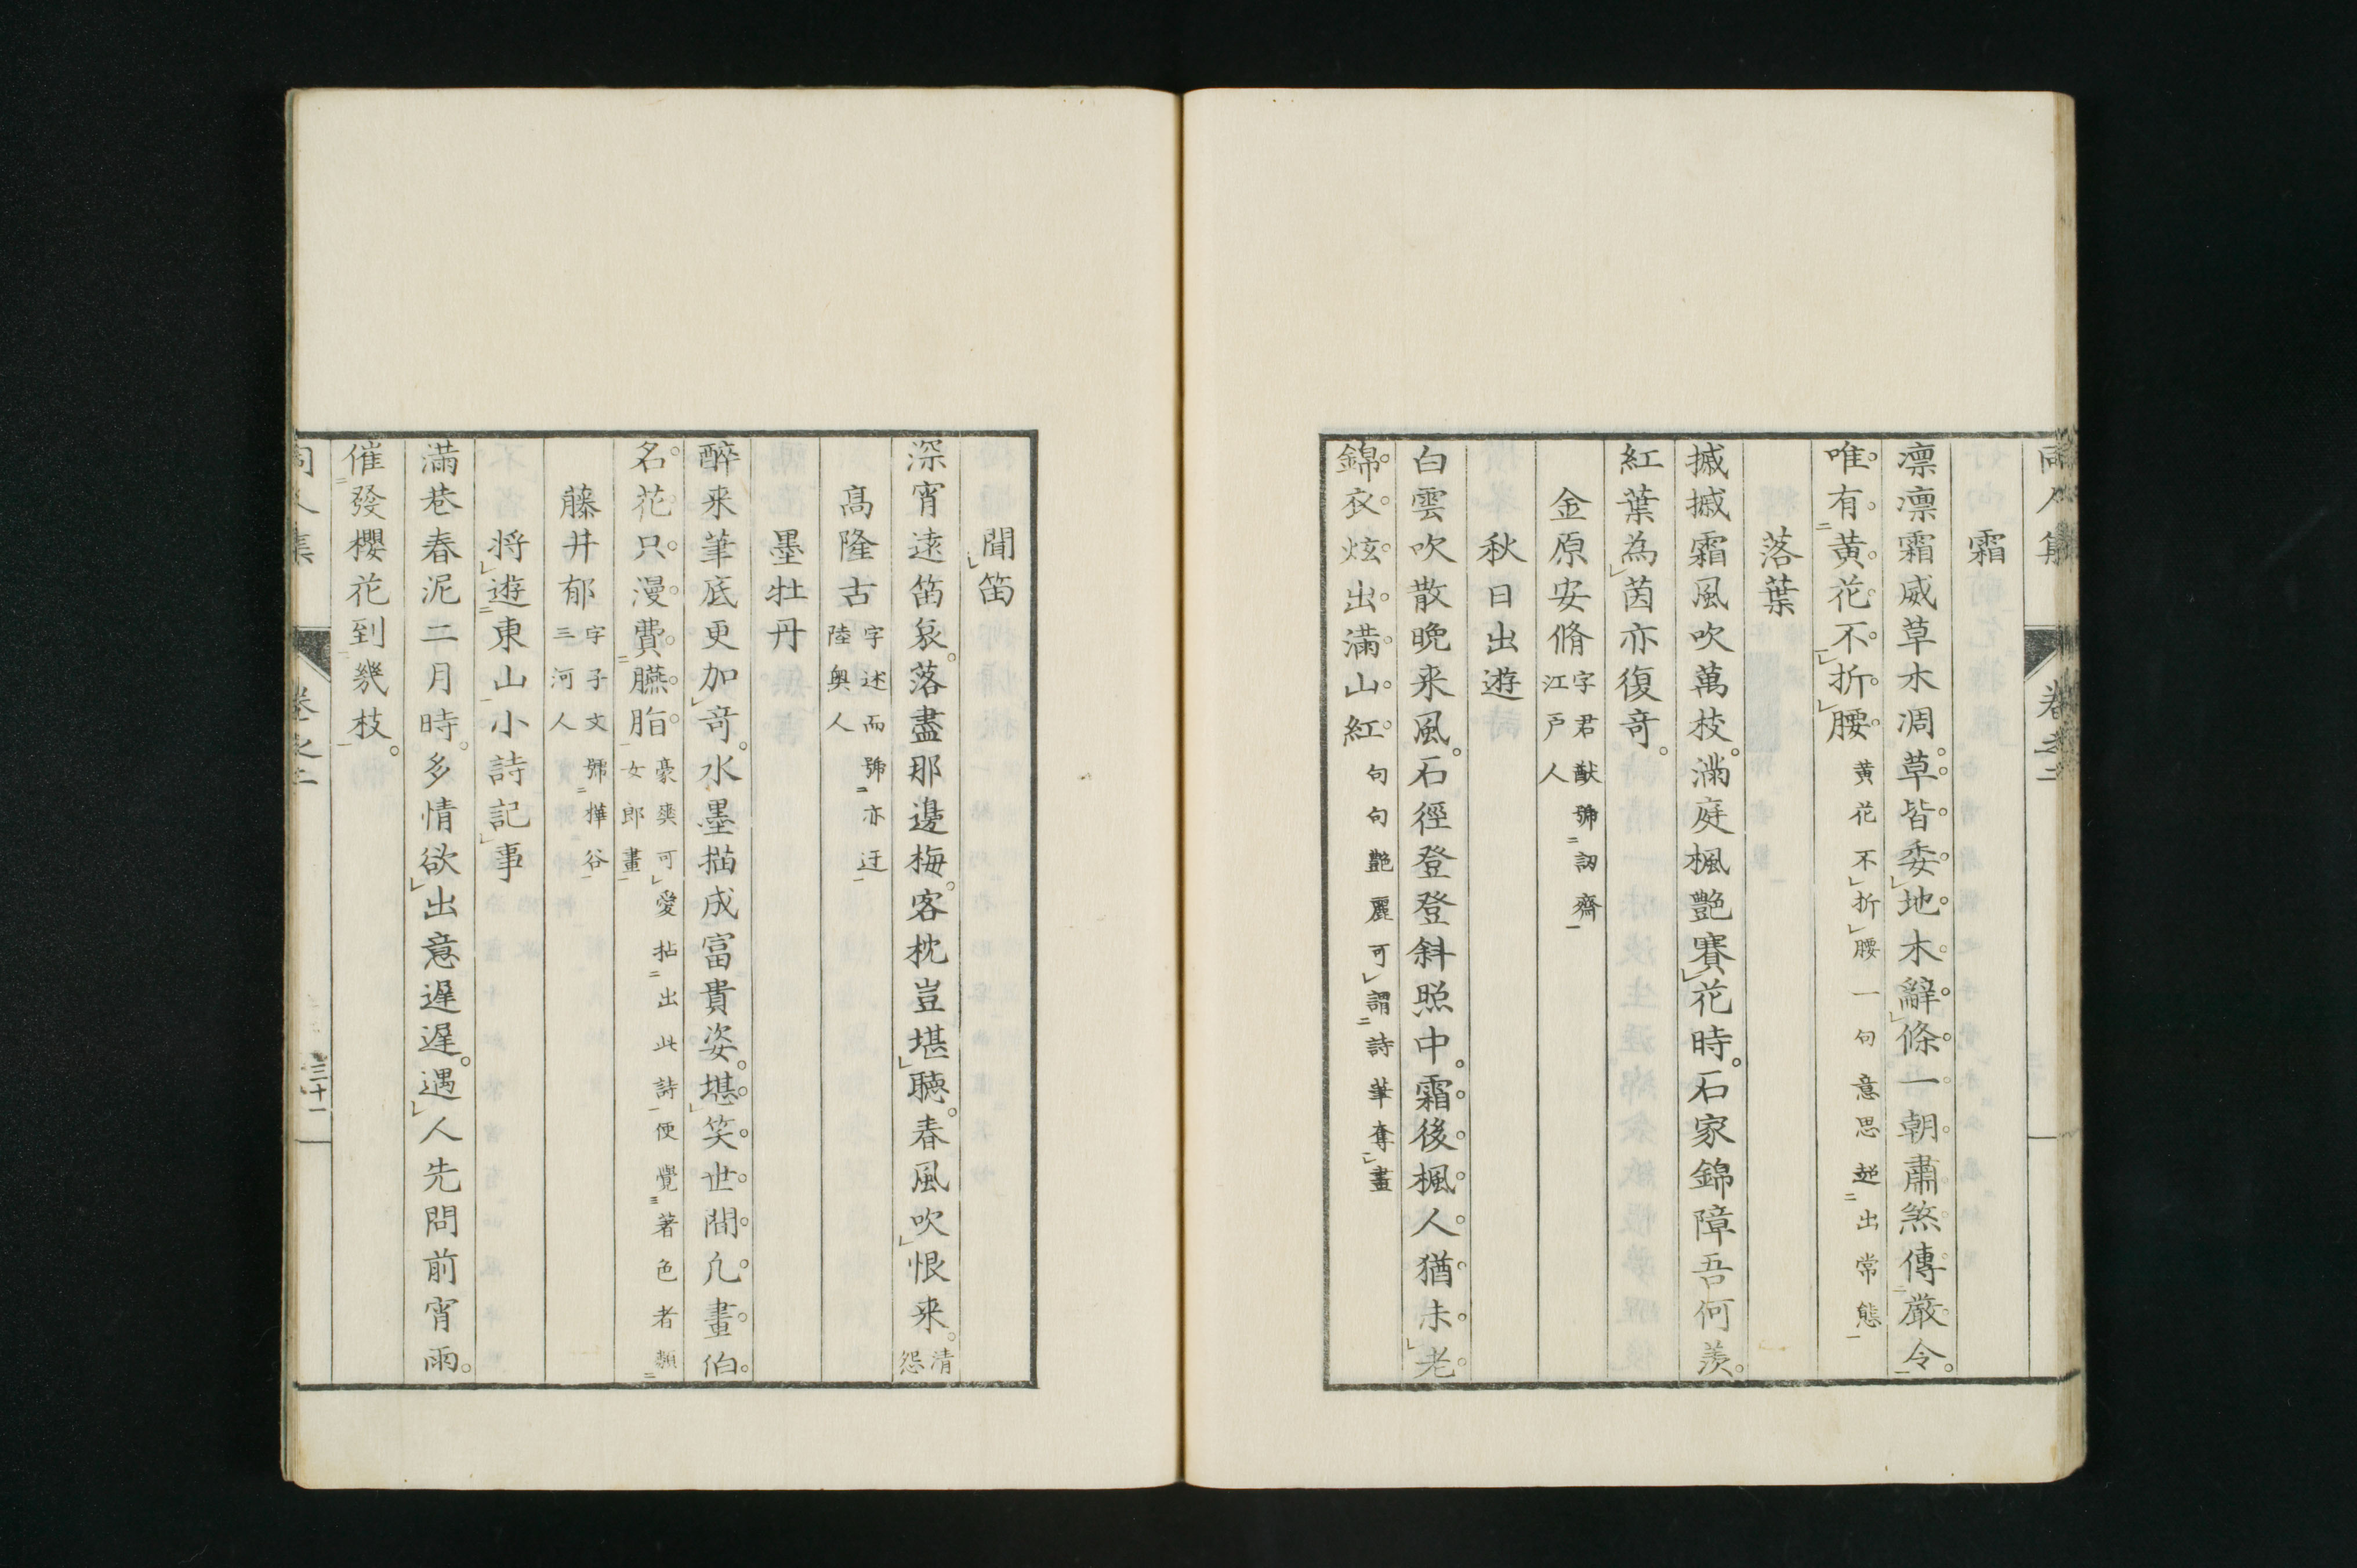 同人集 卷之二
霜
凛凛霜威草木凋。草皆委地木辭條。一朝肅煞傳嚴令。
唯有黄花不折腰 黄花不折腰一句意思超出常態
落葉
摵摵霜風吹萬枝。滿庭楓艷賽花時。石家錦障吾何羨。
紅葉為茵亦復奇。
金原安脩 字君猷號訒齋 江戸人
秋日出遊
白雲吹散晩来風。石徑登登斜照中。霜後楓人猶未老
錦衣炫出滿山紅。 句句艷麗可謂詩筆奪畫
聞笛
深宵遠笛哀。落盡那邊梅。客枕豈堪聽。春風吹恨来。 清怨
髙隆古 字述而號亦迂 陸奥人
墨牡丹
醉来筆底更加奇。水墨描成富貴姿。堪笑世間凡畫伯。
名花只漫費臙脂 豪爽可愛拈出此詩便覺著色者類女郎畫
藤井郁 字子文號樺谷 三河人
将遊東山小詩記事
滿巷春泥二月時。多情欲出意遲遲。遇人先問前宵雨。
催發櫻花到幾枝。
同人集 卷之二 三十一